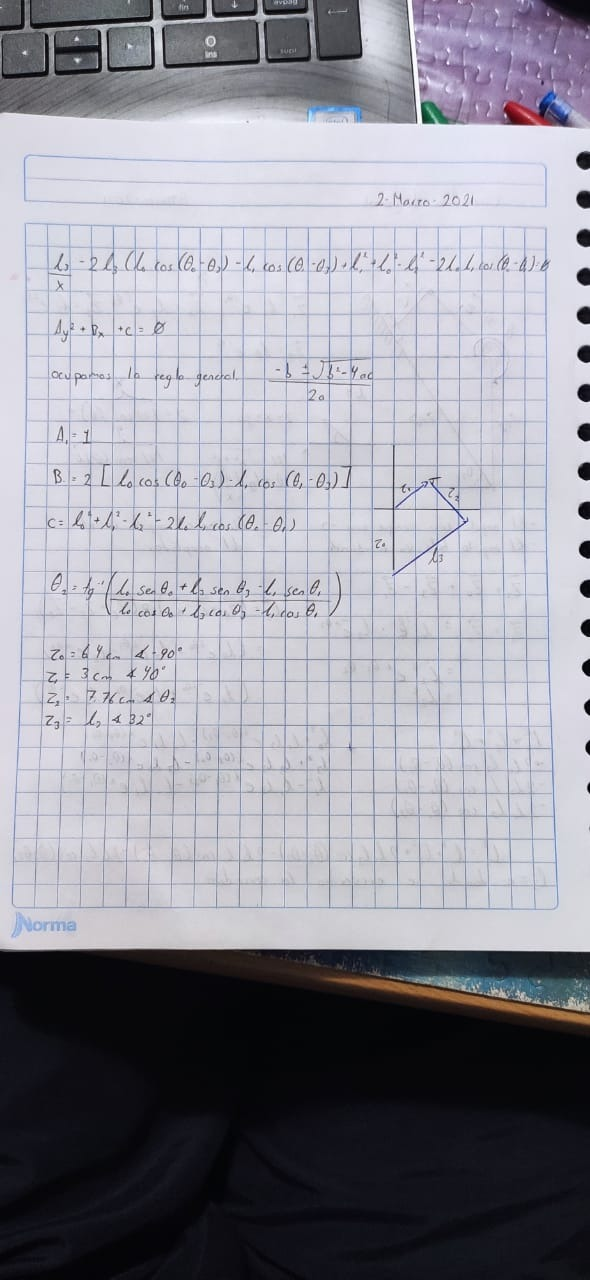 fin
avpag
ins
supr
intel
2-Marzo-2021
l₃²/x - 2l₃(l₀ cos(θ₀-θ₃) - l₁ cos(θ₁-θ₃) + l₁² + l₀² - l₂² - 2l₀ l₁ cos(θ₀-θ₁)=0
Ay² + Bx + c = Ø
ocupamos la regla general. (-b ± √(b²-4ac))/2a
A₁ = 1
B = 2 [l₀ cos(θ₀-θ₃) - l₁ cos (θ₁-θ₃)]
C = l₀² + l₁² - l₂² - 2l₀ l₁ cos(θ₀-θ₁)
θ₂ = tg⁻¹((l₀ sen θ₀ + l₃ sen θ₃ - l₁ sen θ₁)/(l₀ cos θ₀ + l₃ cos θ₃ - l₁ cos θ₁))
z₁
z₂
z₀
l₃
z₀ = 6.4 cm ∡ -90°
z₁ = 3 cm ∡ 40°
z₂ = 7.76 cm ∡ θ₂
z₃ = l₃ ∡ 32°
Norma